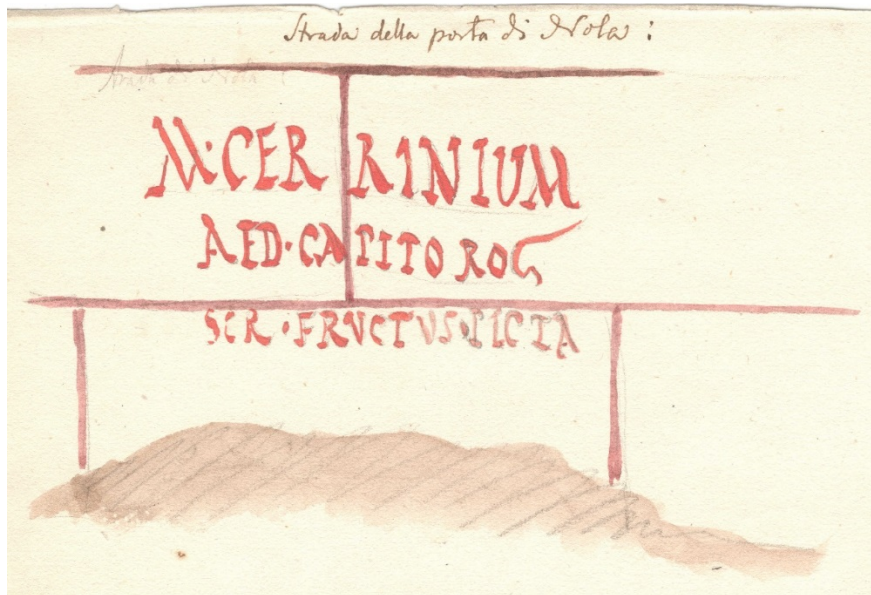 Strada della porta di Nola :
Strada di Nola
M·CER RINIUM
AED·CAPITO ROG
SCR·FRUCTVS·PICTA